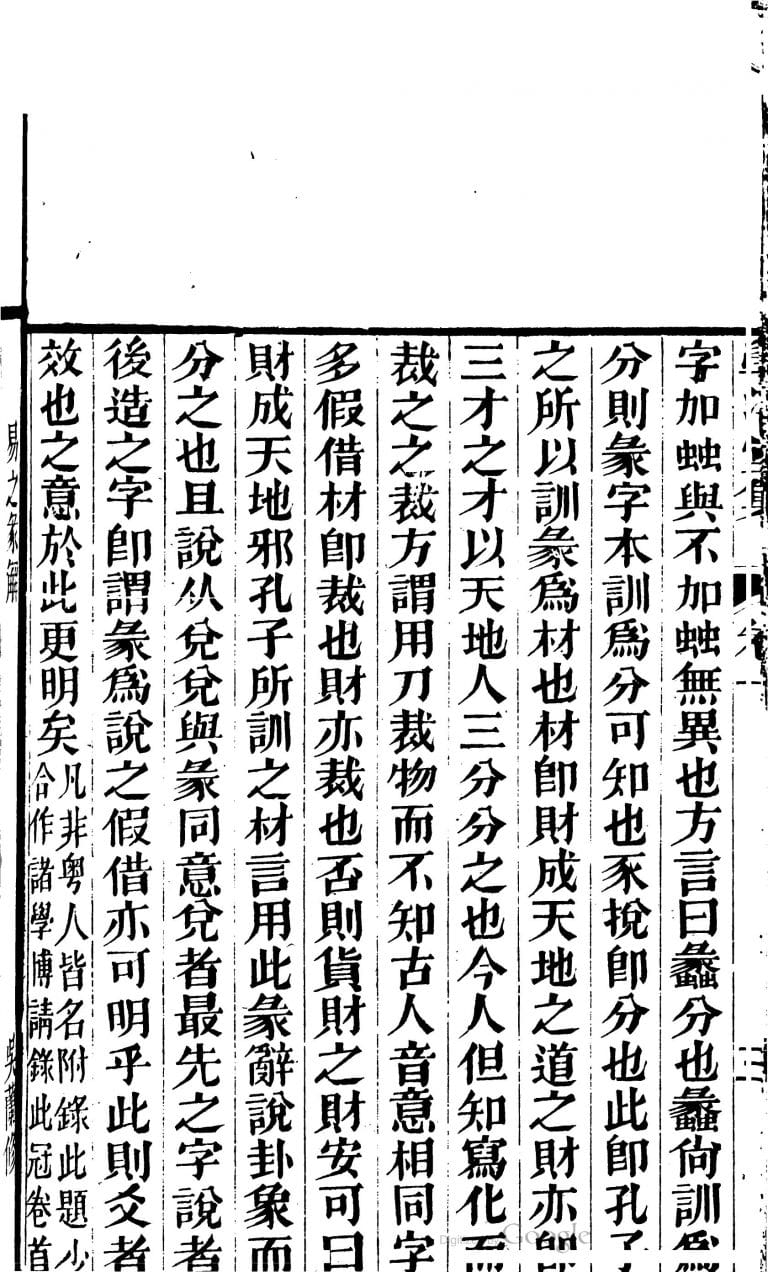 字加䖵與不加䖵無異也方言曰蠡分也蠡尙訓爲
分則彖字本訓爲分可知也豕挩卽分也此卽孔子
之所以訓彖爲材也材卽財成天地之道之財亦卽
三才之才以天地人三分分之也今人但知寫化而
裁之之裁方謂用刀裁物而不知古人音意相同字
多假借材卽裁也財亦裁也否則貨財之財安可曰
財成天地邪孔子所訓之材言用此彖辭說卦象而
分之也且說从兌兌與彖同意兌者最先之字說者
後造之字卽謂彖爲說之假借亦可明乎此則爻者
效也之意於此更明矣凡非粵人皆名附錄此題少
合作諸學博請錄此冠卷首
易之彖解
吳蘭修
Digitized by Google